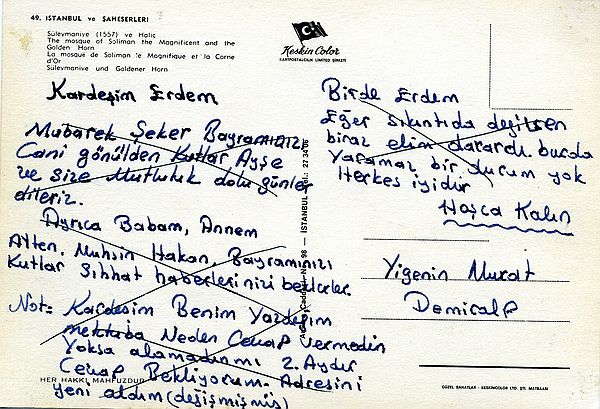 49. ISTANBUL ve ŞAHESERLERİ
Süleymaniye (1557) ve Haliç
The mosque of Soliman the Magnificent and the
Golden Horn
La mosque de Soliman le Magnifique et la Corne
d'Or
Süleymaniye und Goldener Horn
Keskin Color
KARTPOSTALCILIK LIMITED ŞİRKETİ
Kardeşim Erdem
Mubarek Şeker Bayramınızı
Cani gönülden Kutlar Ayşe
ve size Mutluluk dolu günler
dileriz.
Ayrıca Babam, Annem
Alten, Muhsin Hakan, Bayramınızı
Kutlar Sıhhat haberlerinizi bekler
Not: Kardeşim Benim Yazdığım
mektuba Neden Cevap Vermedin
Yoksa alamadınmı 2. Aydır
Cevap Bekliyorum. Adresini
yeni aldım (değişmiş)
HER HAKKI MAHFUZDUR
98 — İSTANBUL
Birde Erdem
Eğer sıkıntıda değilsen
biraz elim darardı. burda
Yaramaz bir durum yok
Herkes iyidir
Hoşca Kalın
Yigenin Murat
Demiralp
GÜZEL SANATLAR - KESKINCOLOR LTD. ŞTİ. MATBAASI